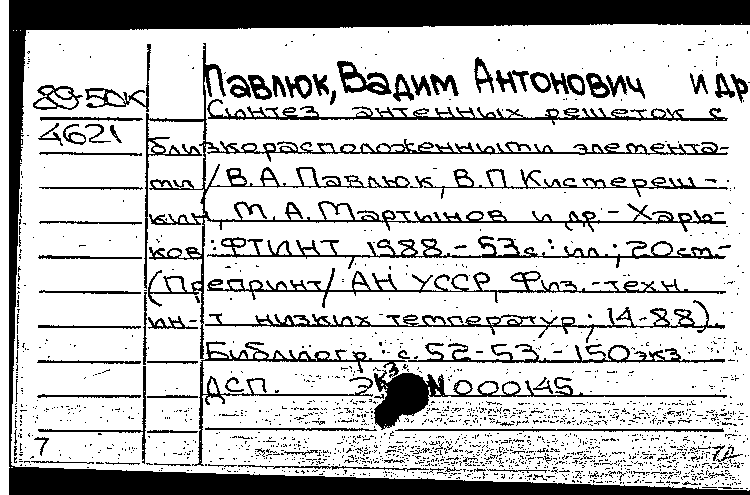 Павлюк, Вадим Антонович и др
89-50К
Синтез антенных решеток с
4621
близкорасположенными элемента-
ми / В.А. Павлюк, В.П Кистереш-
кин, М.А. Мартынов и др - Харь-
ков : ФТИНТ, 1988. - 53с. : ил. ; 20 см. -
(Препринт / АН УССР, Физ.-техн.
ин-т низких температур ; 14-88).
Библиогр. : с. 52-53. - 150 экз
ДСП. Экз N 000145.
7